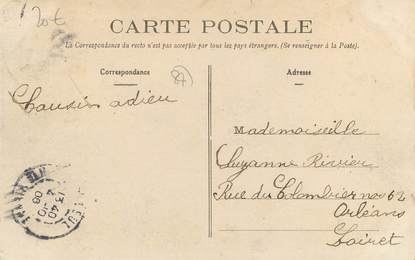 20t
CARTE POSTALE
La Correspondance du recto n'est pas acceptée par tous les pays étrangers. (Se renseigner à la Poste.)
Correspondance
Adresse
Cousin adieu
Mademoiselle
Suzanne Rivier
Rue du Colombier no 62
Orléans
Loiret